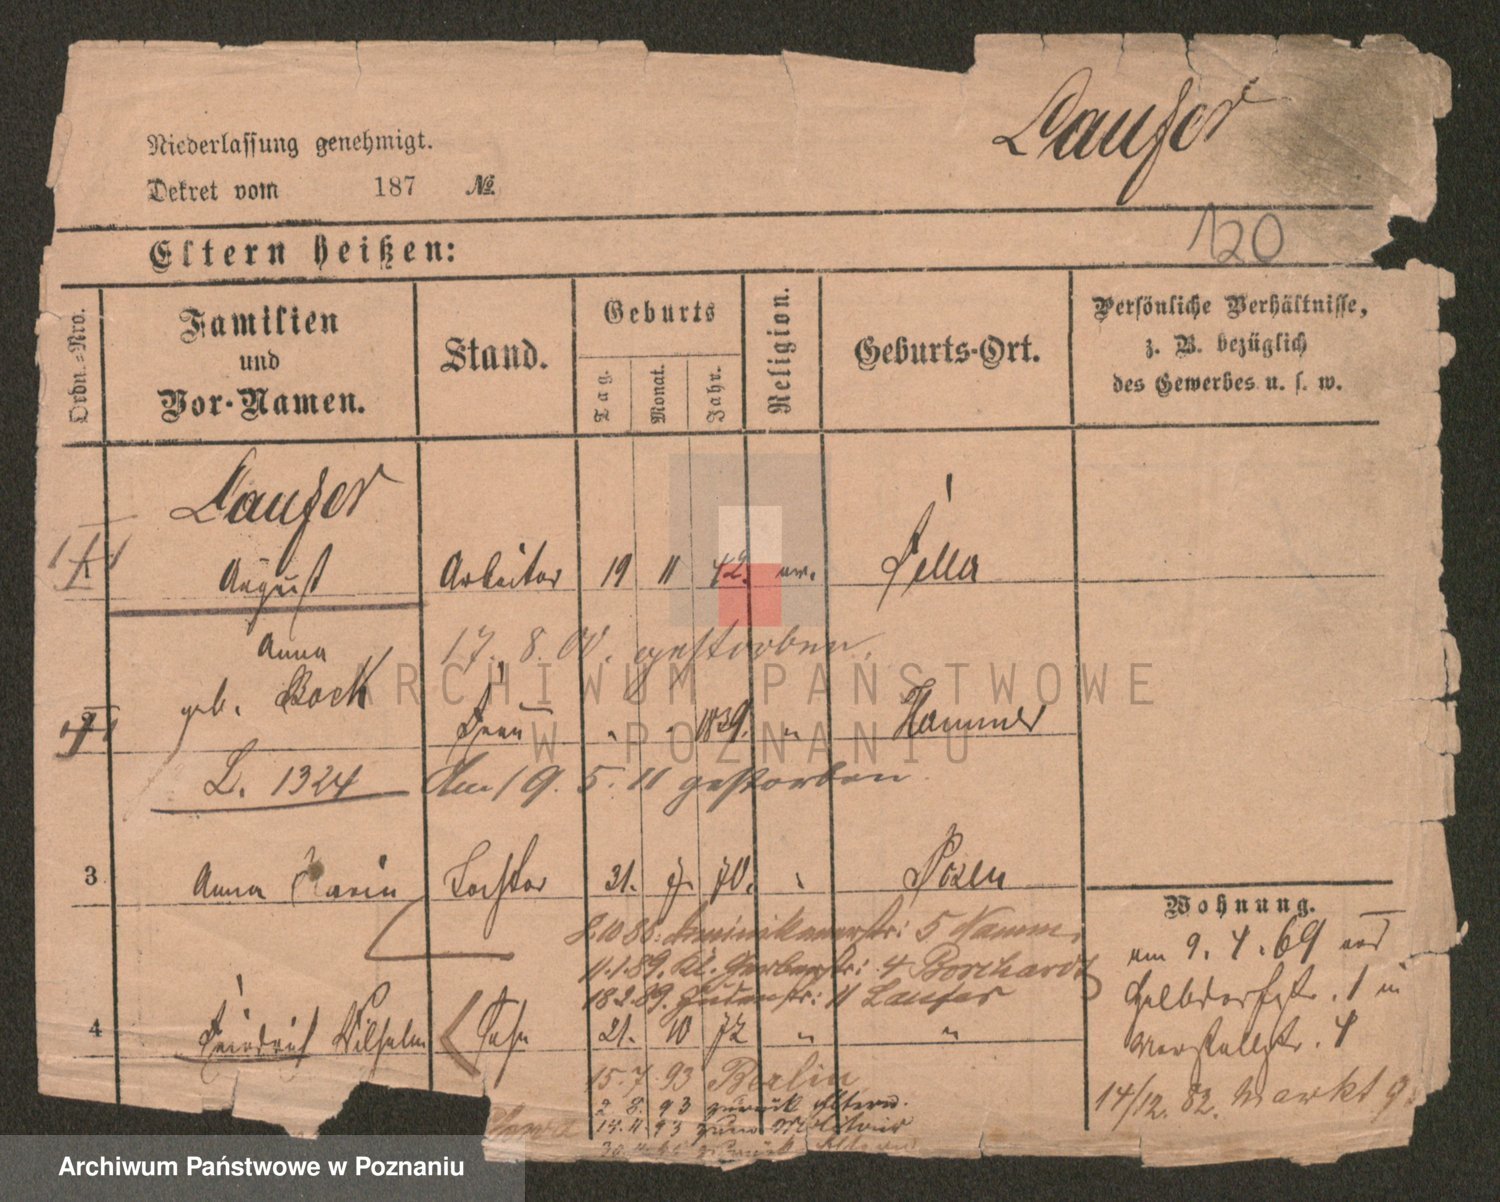 Laufer
Niederlassung genehmigt.
Dekret vom 187 №
120
Eltern heißen:
Ordn.-Nro.
Familien
und
Vor-Namen.
Stand.
Geburts
Tag.
Monat.
Jahr.
Religion.
Geburts-Ort.
Persönliche Verhältnisse,
z. B. bezüglich
des Gewerbes u. s. w.
Laufer
1
August Arbeiter 19 11 42. ev.
17. 8. 00. gestorben.
Anna
geb. Bock Frau " " 1839. " Hammer
L. 1324 Am 19. 5. 11 gestorben
3 Anna Maria Tochter 21. 7. 70. " Posen
8.10 88. Dominikanerstr: 5
11.1.89. Kl. Gerberstr: 4 Borchardt
18.2.89. Judenstr: 11 Laufer
4 Friedrich Wilhelm Sohn 21. 10 72 " "
15.7.93 Berlin
2. 8. 93 zurück Eltern.
14.11.93 zum Militair
zurück Eltern
Wohnung.
am 9. 4. 69
14/12. 82. Markt 9
ARCHIWUM PAŃSTWOWE
W POZNANIU
Archiwum Państwowe w Poznaniu